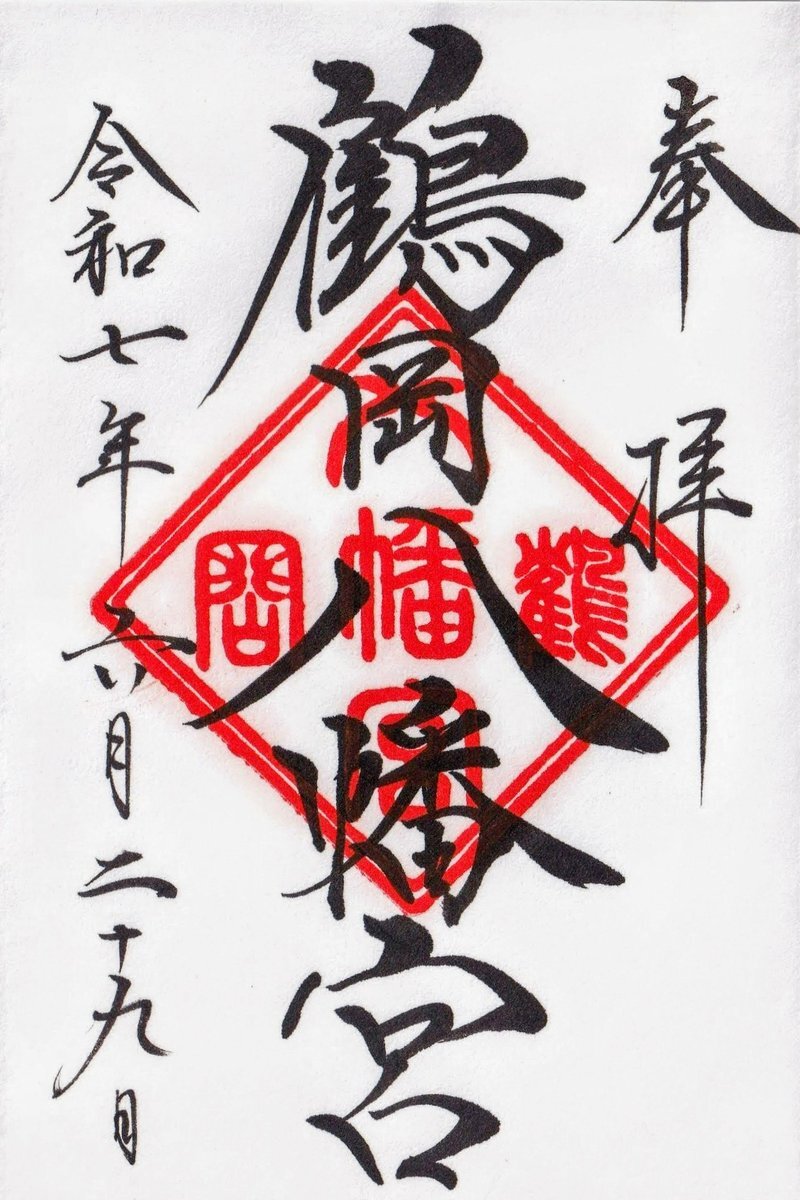 奉拝
鶴岡八幡宮
令和七年六月二十九日
鶴
八幡宮
岡